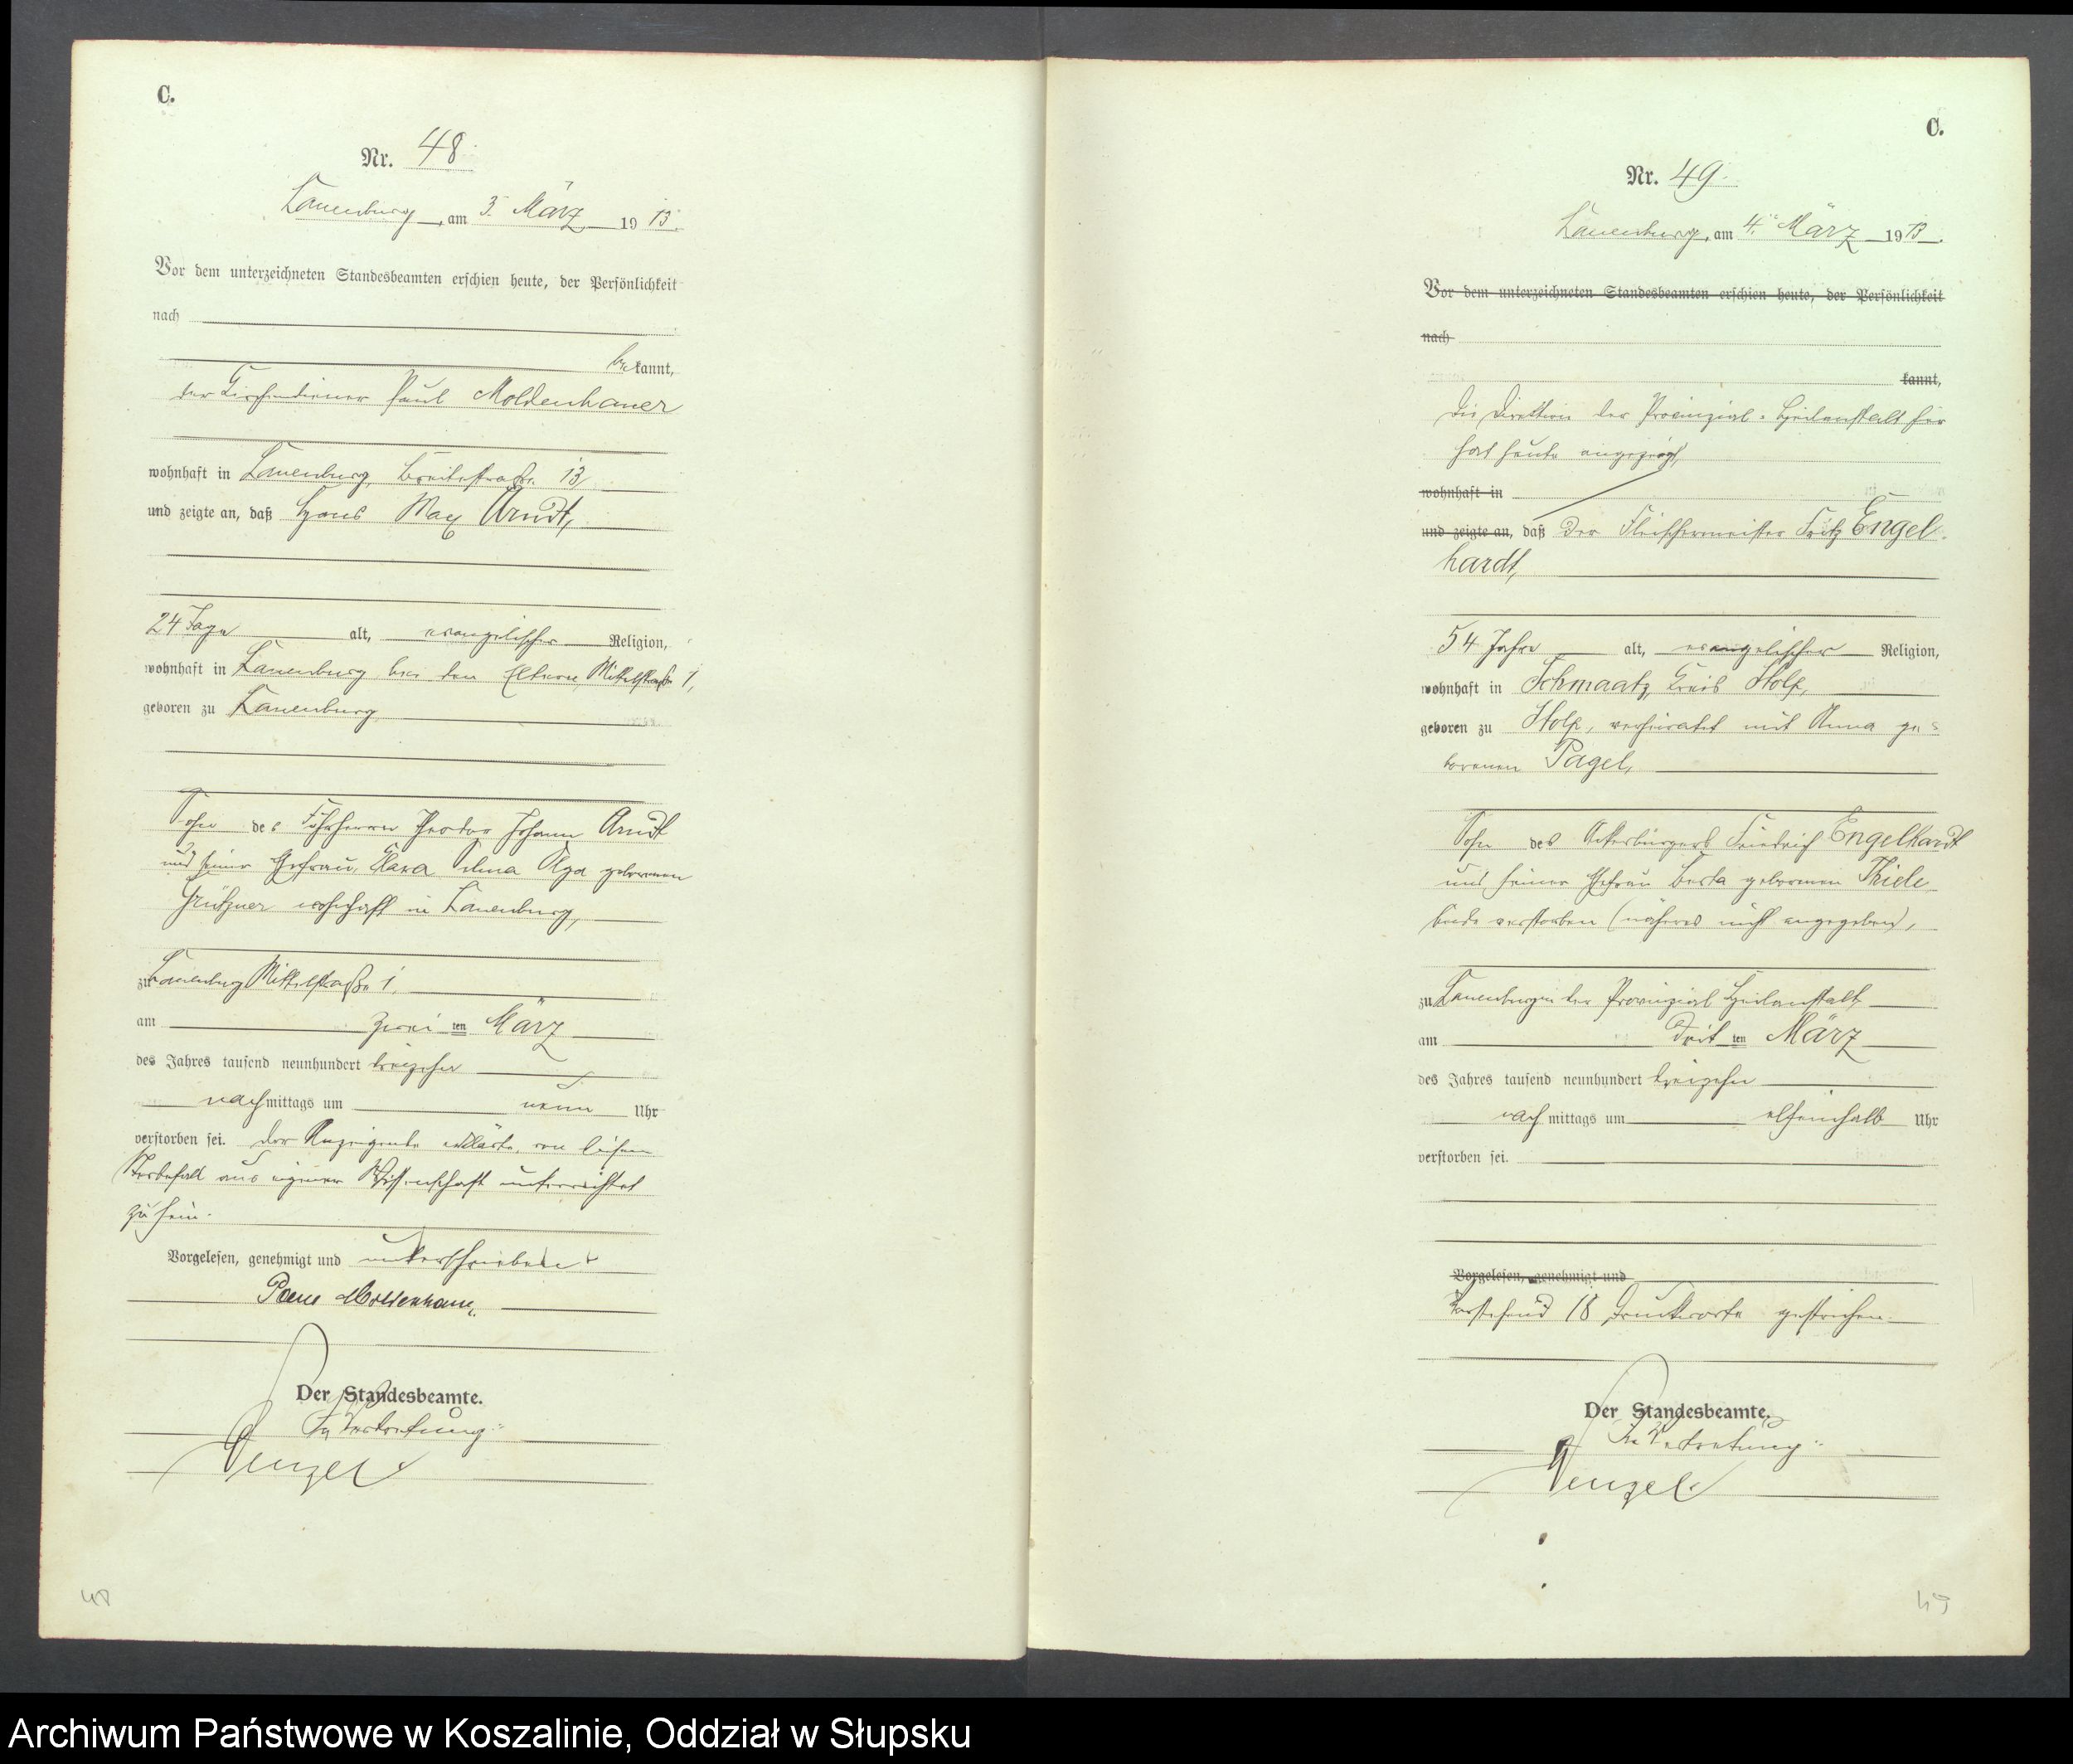 C.
Nr. 48.
Lauenburg, am 3. März 1913.
Vor dem unterzeichneten Standesbeamten erschien heute, der Persönlichkeit
nach
bekannt,
der Kirchendiener Paul Moldenhauer
wohnhaft in Lauenburg, Breitestraße 13
und zeigte an, daß Hans Max Arndt,
24 Tage alt, evangelischer Religion,
wohnhaft in Lauenburg bei den Eltern, Mittelstraße 1,
geboren zu Lauenburg
Sohn des Fuhrherrn Johann Arndt
und seiner Ehefrau, Klara Selma Olga geborenen
Grützner wohnhaft in Lauenburg,
zu Lauenburg Mittelstraße 1,
am zweiten März
des Jahres tausend neunhundert dreizehn
nachmittags um neun Uhr
verstorben sei. Der Anzeigende erklärte, von diesem
Sterbefall aus eigener Wissenschaft unterrichtet
zu sein.
Vorgelesen, genehmigt und unterschrieben
Paul Moldenhauer.
Der Standesbeamte.
In Vertretung:
Wenzel
48
C.
Nr. 49.
Lauenburg, am 4. März 1913.
Vor dem unterzeichneten Standesbeamten erschien heute, der Persönlichkeit
nach
kannt,
Die Direktion der Provinzial-Heilanstalt hier
hat heute angezeigt,
wohnhaft in
und zeigte an, daß der Fleischermeister Fritz Engel-
hardt,
54 Jahre alt, evangelischer Religion,
wohnhaft in Schmaatz, Kreis Stolp,
geboren zu Stolp, verheiratet mit Anna ge-
borenen Pagel,
Sohn des Ackerbürgers Friedrich Engelhardt
und seiner Ehefrau Berta geborenen Thiele
beide verstorben (näheres nicht angegeben),
zu Lauenburg in der Provinzial Heilanstalt
am dritten März
des Jahres tausend neunhundert dreizehn
nachmittags um elfeinhalb Uhr
verstorben sei.
Vorgelesen, genehmigt und
Vorstehend 18 Druckworte gestrichen.
Der Standesbeamte.
In Vertretung:
Wenzel
49
Archiwum Państwowe w Koszalinie, Oddział w Słupsku